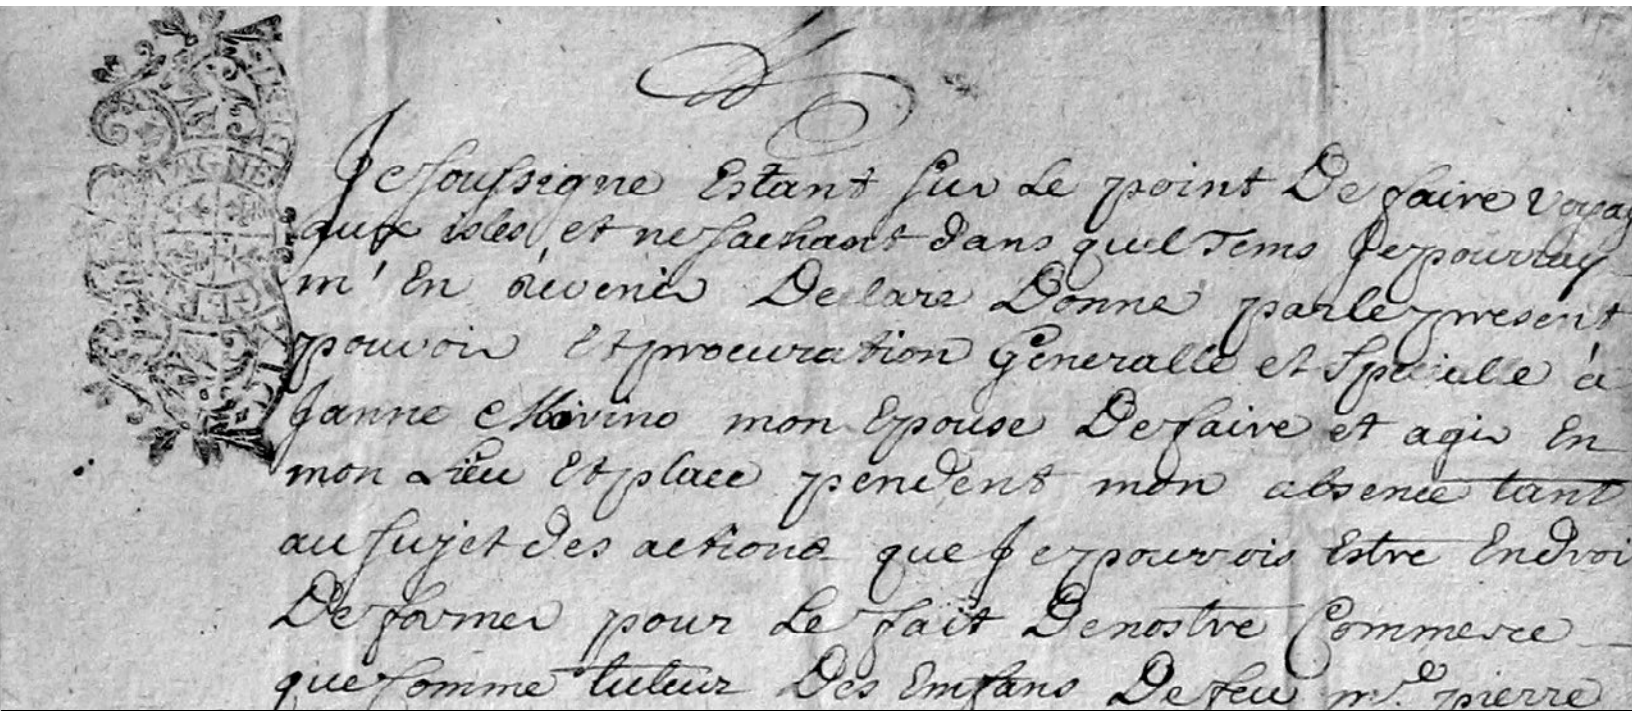 Je soussigne Estant sur Le point De faire voyag
aux isles et ne sachant dans quel Tems Je pourray
m'En revenir Declare Donne par le present
pouvoir Et procuration Generalle et Specialle à
Janne mon Epouse De faire et agir En
mon Lieu Et place pendent mon absence tant
au sujet des actions que Je pourrois Estre Endroi
De former pour Le fait De nostre Commerce
que comme tuteur Des Emfans De feu mr. pierre